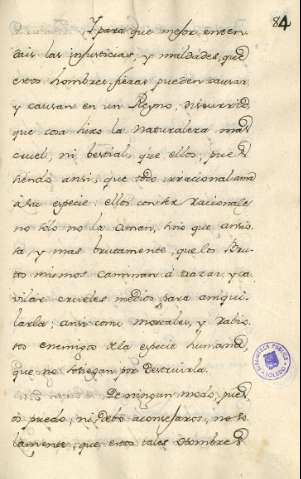 84
Y para que mejor enten
dais las injusticias, y maldades, que
estos hombres fieras pueden causar
y causan en un Reyno, discurrid
que cosa hizo la naturaleza mas
cruel, ni bestial que ellos, pues
siendo ansi, que todo irracional ama
a su especie: ellos con ser racionales
no solo no la aman, sino que
ta y mas brutamente, que los Bru
tos mismos caminan á trazar, y a
crueles medios para aniqui
larla; ansi como mortales, y rabio
sos enemigos de la especie humana,
que no sosiegan por destruirla.
De ningun modo, pues
os puedo, ni debo aconsejaros, no so
lamente, que estos tales Hombres
BIBLIOTECA PUBLICA